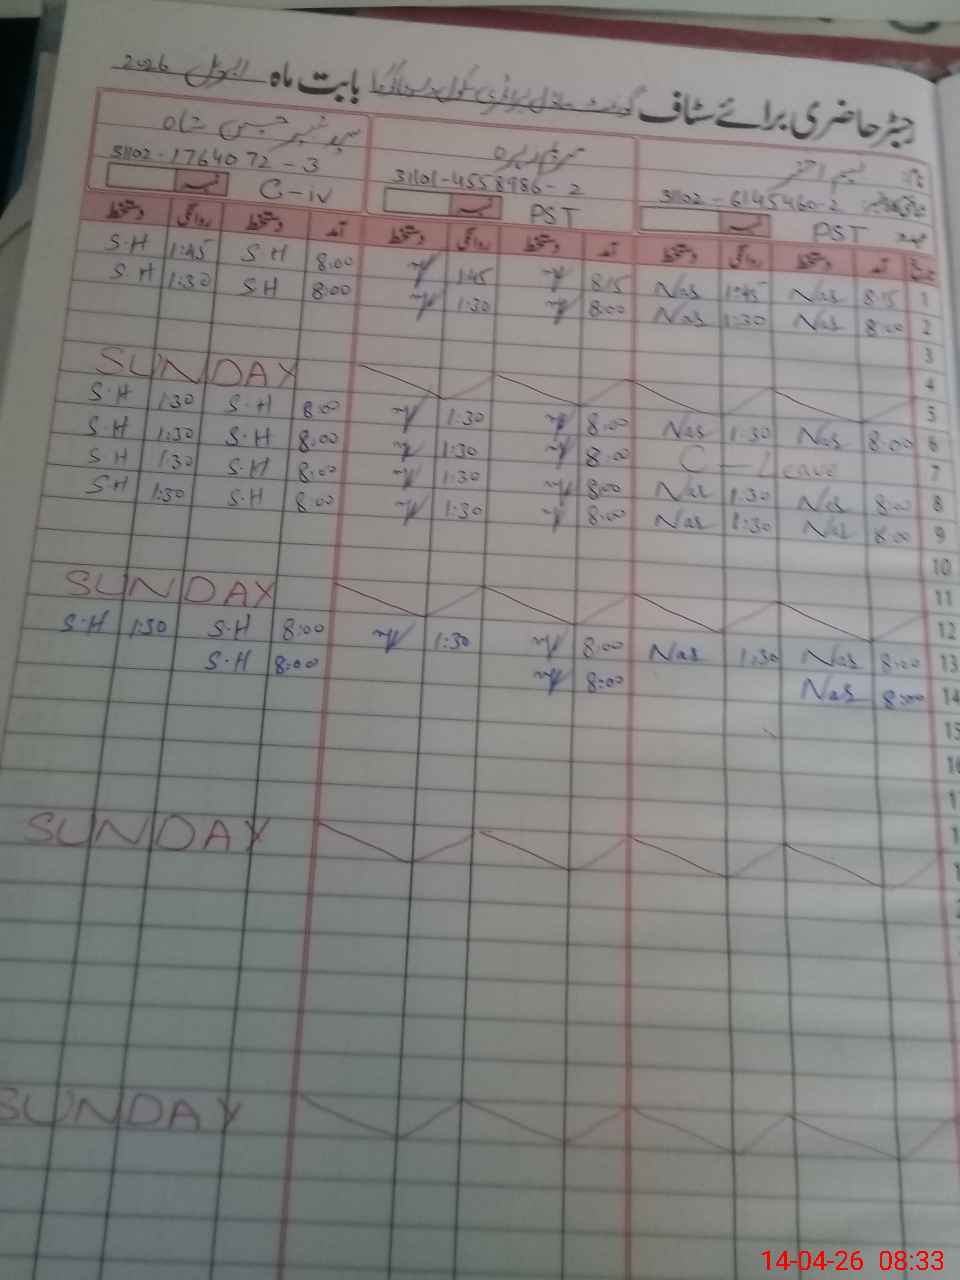 رجسٹر حاضری برائے سٹاف گورنمنٹ ماڈل پرائمری سکول بابت ماہ اپریل 2026
نام: نسیم اختر
سید شبیر حسین شاہ
شناختی کارڈ نمبر: 31102-6145460-2 31101-4558986-2 31102-1764072-3
عہدہ PST PST C-iv
تاریخ آمد دستخط روانگی دستخط آمد دستخط روانگی دستخط آمد دستخط روانگی دستخط
1 8:15 Nas 1:45 Nas 8:15 1:45 8:00 S.H 1:45 S.H
2 8:00 Nas 1:30 Nas 8:00 1:30 8:00 S.H 1:30 S.H
3
4
5 SUNDAY
6 8:00 Nas 1:30 Nas 8:00 1:30 8:00 S.H 1:30 S.H
7 C-Leave 8:00 1:30 8:00 S.H 1:30 S.H
8 8:00 Nas 1:30 Nas 8:00 1:30 8:00 S.H 1:30 S.H
9 8:00 Nas 1:30 Nas 8:00 1:30 8:00 S.H 1:30 S.H
10
11
12 SUNDAY
13 8:00 Nas 1:30 Nas 8:00 1:30 8:00 S.H 1:30 S.H
14 8:00 Nas 8:00 8:00 S.H
15
16
SUNDAY
SUNDAY
14-04-26 08:33